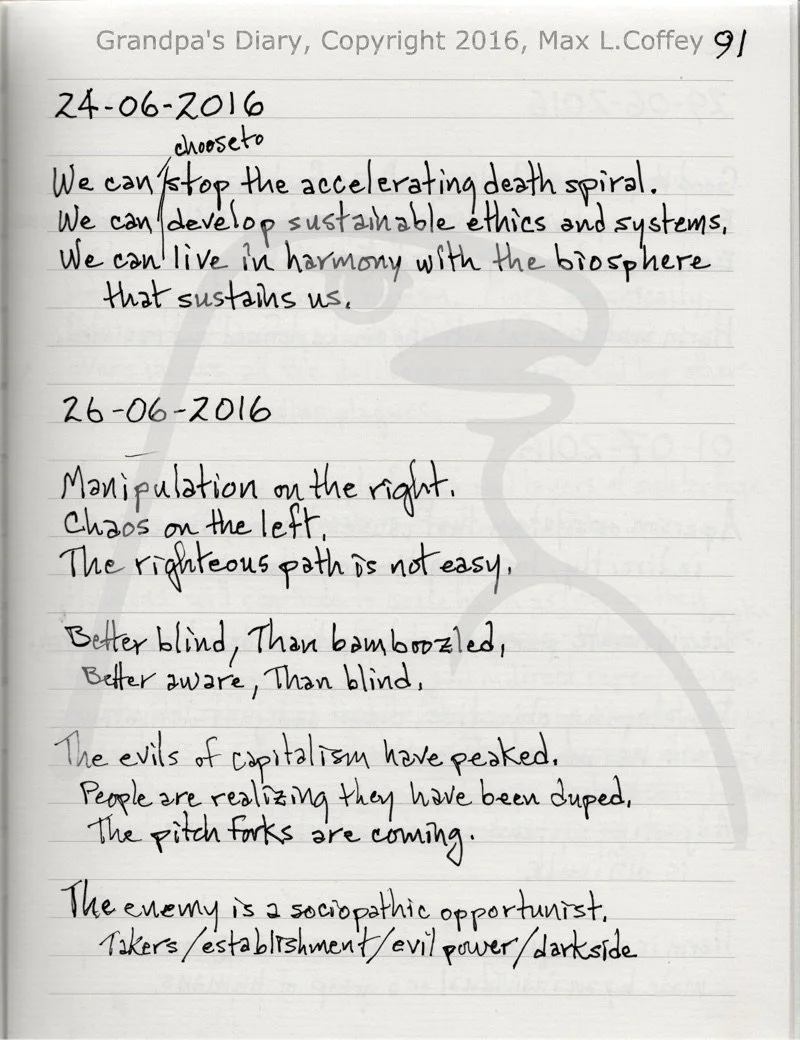 Grandpa's Diary, Copyright 2016, Max L.Coffey 91
24-06-2016
choose to
We can stop the accelerating death spiral.
We can develop sustainable ethics and systems,
We can live in harmony with the biosphere
that sustains us.
26-06-2016
Manipulation on the right.
Chaos on the left.
The righteous path is not easy.
Better blind, Than bamboozled,
Better aware, Than blind.
The evils of capitalism have peaked.
People are realizing they have been duped,
The pitch forks are coming.
The enemy is a sociopathic opportunist.
Takers/establishment/evil power/darkside